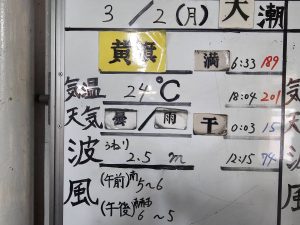 3/2(月) 大潮
黄旗 満 6:33 189
気温 24℃ 18:04 201
天気 曇/雨 干 0:03 15
波 うねり 2.5m 12:15 74
風 (午前)南 5~6
(午後) 6~5 風